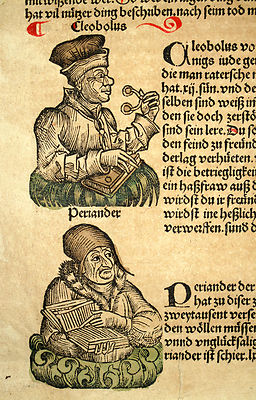 mit wißende wer. Do so wären an dem
hat vil nützer ding beschriben. nach seim tod m
Cleobolus
Cleobolus vo
nigs iude ge
die man ratersche
hat. xij. sün. vnd de
selben sind weiß in
den sie doch zerstö
sind sein lere. Du so
den feind zu freünd
derlag verhüeten.
ist die betrieglig
ein haßfraw auß d
wirdst du ir freünd
wirdst ine heßlich
verwerffen. sunds
Periander
Periander der
hat zu diser z
zweytausent verse
den wöllen müssen
vnnd vnglücksalig
riander ist schier. lx